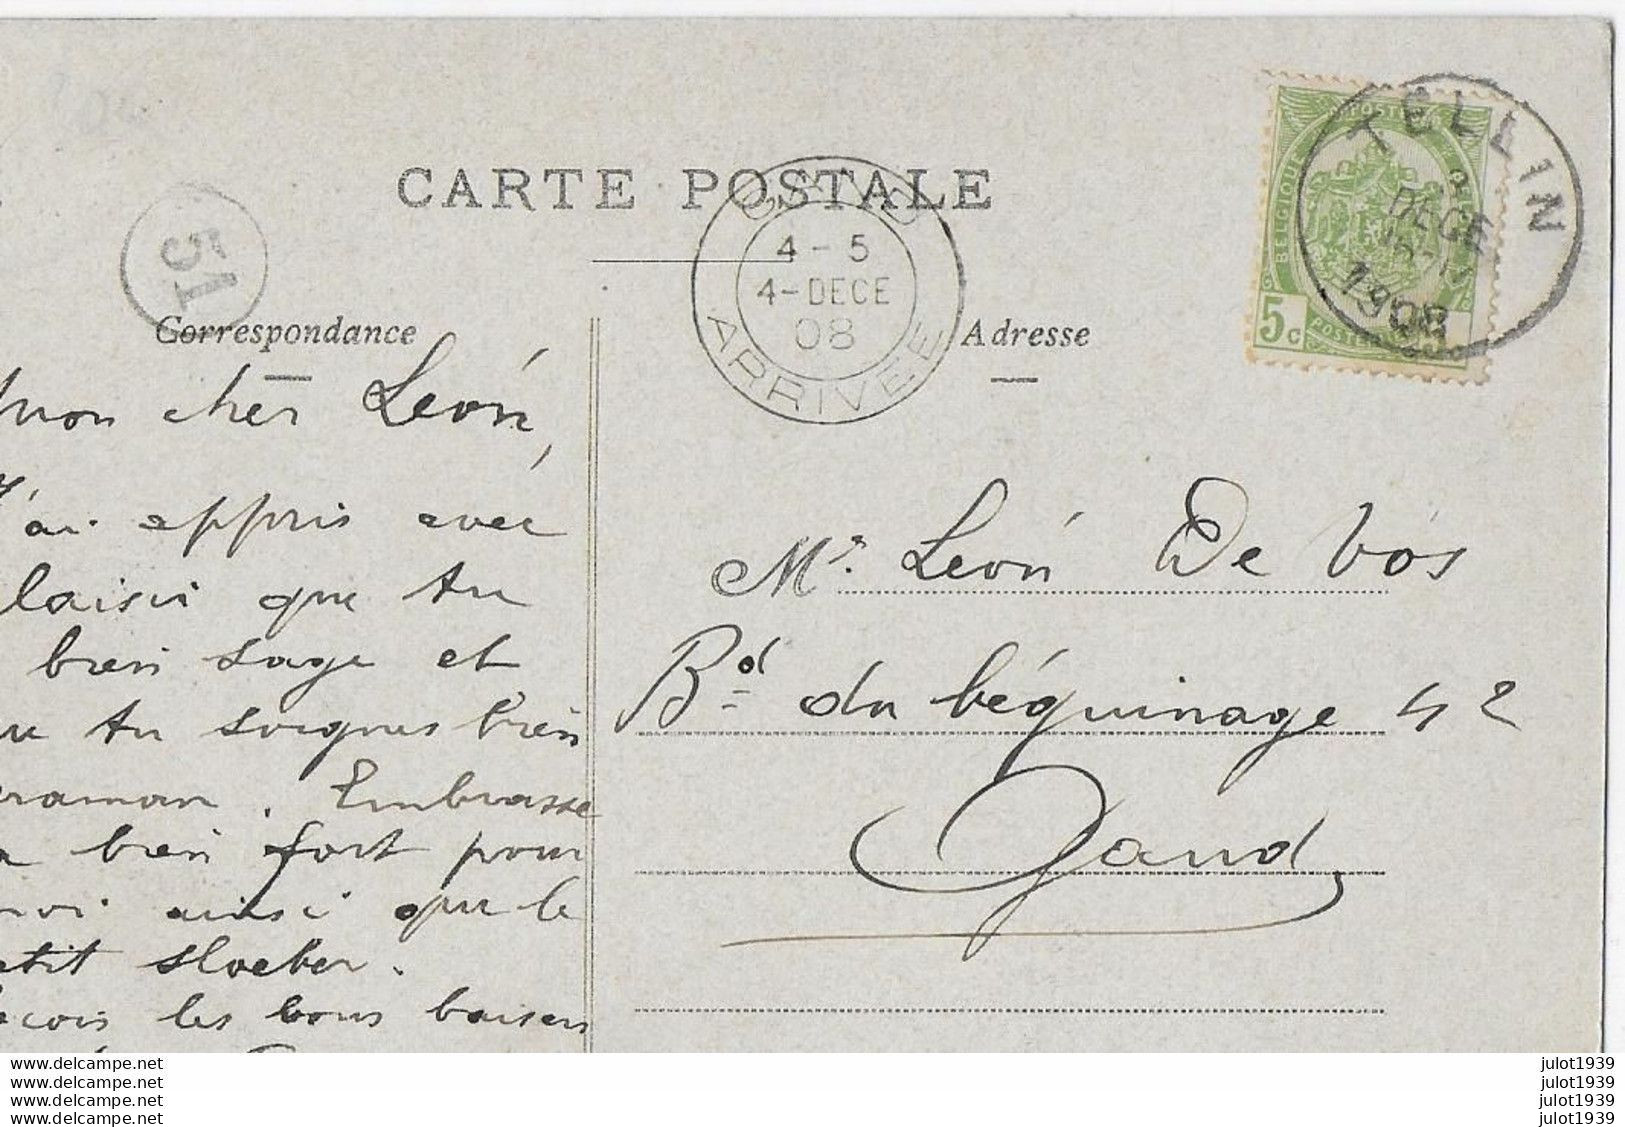 CARTE POSTALE
51
GAND
4-5
4-DECE
08
ARRIVEE
TELLIN
DECE
1908
POSTES
BELGIQUE
5c
Correspondance
Adresse
Mon cher León,
J'ai appris avec
laisir que tu
bien sage et
tu soignes bien
raman. Embrasse
bien fort pour
moi ainsi que le
etit sloeber.
eçois les bons baisers
Mr. León De Vos
Bd du béguinage 42
Gand
www.delcampe.net
www.delcampe.net
www.delcampe.net
www.delcampe.net
julot1939
julot1939
julot1939
julot1939